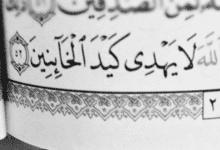 لَمِنَ ٱلصَّٰدِقِينَ
ٱللَّهَ لَا يَهْدِى كَيْدَ ٱلْخَآئِنِينَ ٥٢
٢